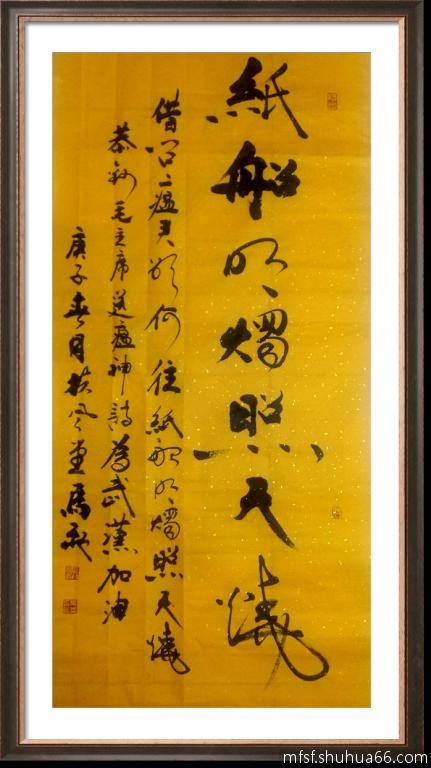 紙船明燭照天燒
借问瘟君欲何往紙船明燭照天燒
恭錄毛主席送瘟神詩為武漢加油
庚子春月扶风堂馬
mfsf.shuhua66.com